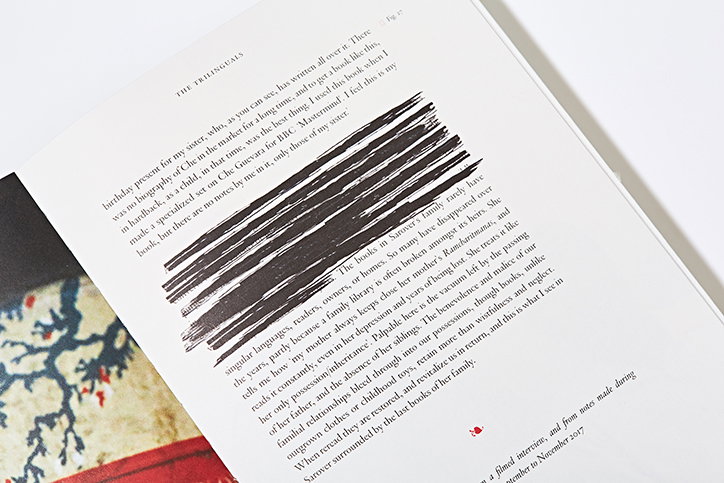 THE TRILINGUALS
Fig. 17
birthday present for my sister, who, as you can see, has written all over it. There
was no biography of Che in the market for a long time, and to get a book like this,
in hardback, as a child, in that time, was the best thing. I used this book when I
made a specialized set on Che Guevara for BBC 'Mastermind'. I feel this is my
book, but there are no notes by me in it, only those of my sister.'
The books in Sarover's family rarely have
singular languages, readers, owners, or homes. So many have disappeared over
the years, partly because a family library is often broken amongst its heirs. She
tells me how 'my mother always keeps close her mother's Ramcharitmanas, and
reads it constantly, even in her depression and years of being lost. She treats it like
her only possession/inheritance'. Palpable here is the vacuum left by the passing
of her father, and the absence of her siblings. The benevolence and malice of our
familial relationships bleed through into our possessions, though books, unlike
outgrown clothes or childhood toys, retain more than wistfulness and neglect.
When reread they are restored, and revitalize us in return, and this is what I see in
Sarover surrounded by the last books of her family.
a filmed interview, and from notes made during
to November 2017